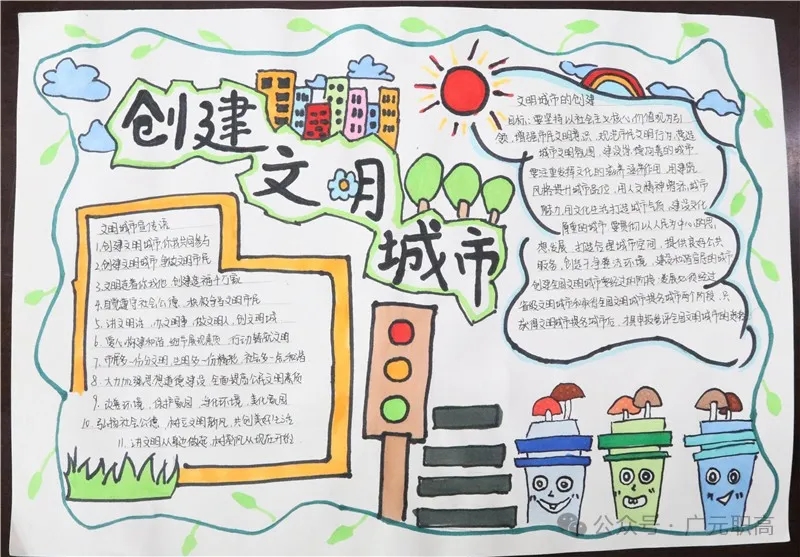 创建
文明
城市
文明城市宣传语
1.创建文明城市 你我共同参与
2.创建文明城市 争做文明市民
3.文明连着你我他 创建造福千万家
4.自觉遵守社会公德 积极争当文明市民
5.讲文明话 办文明事 做文明人 创文明城
6.爱心构建和谐 细节展现素质 行动铸就文明
7.你多一份文明 我多一份精彩
8.大力加强思想道德建设 全面提高公民文明素质
9.改善环境 保护家园 净化环境 美化家园
10.弘扬社会公德 树立文明新风 共创美好生活
11.讲文明从身边做起 树新风从现在开始
文明城市的创建
目标:要坚持以社会主义核心价值观为引
领,增强市民文明意识,规范市民文明行为,营造
城市文明氛围,建设崇德向善的城市
要注重发挥文化的涵养作用,用建筑
风格提升城市品位,用人文精神增添城市
魅力,用文化生活打造城市气质,建设文化
厚重的城市,要贯彻以人民为中心的思
想发展,打造合理城市空间,提供良好公共
服务,创造干净整洁环境,建设和谐宜居的城市
创建全国文明城市要经过的阶段:要经过
省级文明城市和全国文明城市提名城市两个阶段,只
获得文明城市提名城市后,
公众号·广元职高